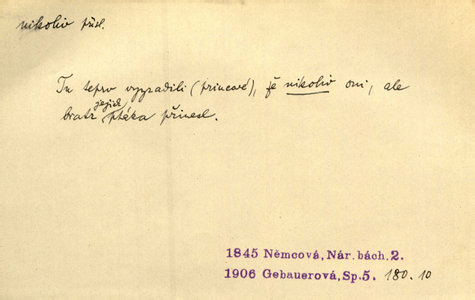 nikoliv přísl.
Tu teprv vyzradili (princové), že nikoliv oni, ale
bratr jejich ptáka přinesl.
1845 Němcová, Nár. bách. 2.
1906 Gebauerová, Sp. 5. 180.10